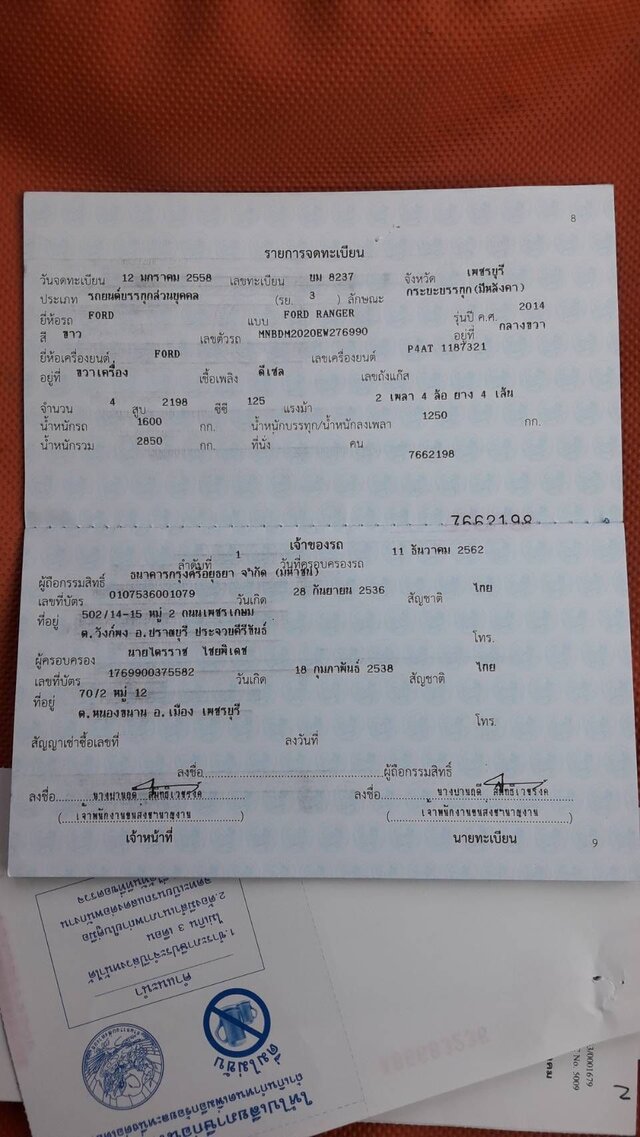 8
รายการจดทะเบียน
วันจดทะเบียน 12 มกราคม 2558 เลขทะเบียน ขม 8237 จังหวัด เพชรบุรี
ประเภท รถยนต์บรรทุกส่วนบุคคล (รย. 3 ) ลักษณะ กระบะบรรทุก(มีหลังคา)
ยี่ห้อรถ FORD แบบ FORD RANGER รุ่นปี ค.ศ. 2014
สี ขาว เลขตัวรถ MNBDM2020EW276990 อยู่ที่ กลางขวา
ยี่ห้อเครื่องยนต์ FORD เลขเครื่องยนต์ P4AT 1187321
อยู่ที่ ขวาเครื่อง เชื้อเพลิง ดีเซล เลขถังแก๊ส
จำนวน 4 สูบ 2198 ซีซี 125 แรงม้า 2 เพลา 4 ล้อ ยาง 4 เส้น
น้ำหนักรถ 1600 กก. น้ำหนักบรรทุก/น้ำหนักลงเพลา 1250 กก.
น้ำหนักรวม 2850 กก. ที่นั่ง คน
7662198
7662198
เจ้าของรถ
ลำดับที่ 1 วันที่ครอบครองรถ 11 ธันวาคม 2562
ผู้ถือกรรมสิทธิ์ ธนาคารกรุงศรีอยุธยา จำกัด (มหาชน)
เลขที่บัตร 0107536001079 วันเกิด 28 กันยายน 2536 สัญชาติ ไทย
ที่อยู่ 502/14-15 หมู่ 2 ถนนเพชรเกษม
ต.วังก์พง อ.ปราณบุรี ประจวบคีรีขันธ์ โทร.
ผู้ครอบครอง นายไตรราช ไชยพิเดช
เลขที่บัตร 1769900375582 วันเกิด 18 กุมภาพันธ์ 2538 สัญชาติ ไทย
ที่อยู่ 70/2 หมู่ 12
ต.หนองขนาน อ.เมือง เพชรบุรี โทร.
สัญญาเช่าซื้อเลขที่ ลงวันที่
ลงชื่อ ผู้ถือกรรมสิทธิ์
ลงชื่อ ลงชื่อ
(เจ้าพนักงานขนส่งชำนาญงาน) (เจ้าพนักงานขนส่งชำนาญงาน)
เจ้าหน้าที่ นายทะเบียน
9
คำแนะนำ
1.ชำระภาษีประจำปีล่วงหน้าได้
ไม่เกิน 3 เดือน
ดื่มไม่ขับ
3/0001679
No. 5009
2